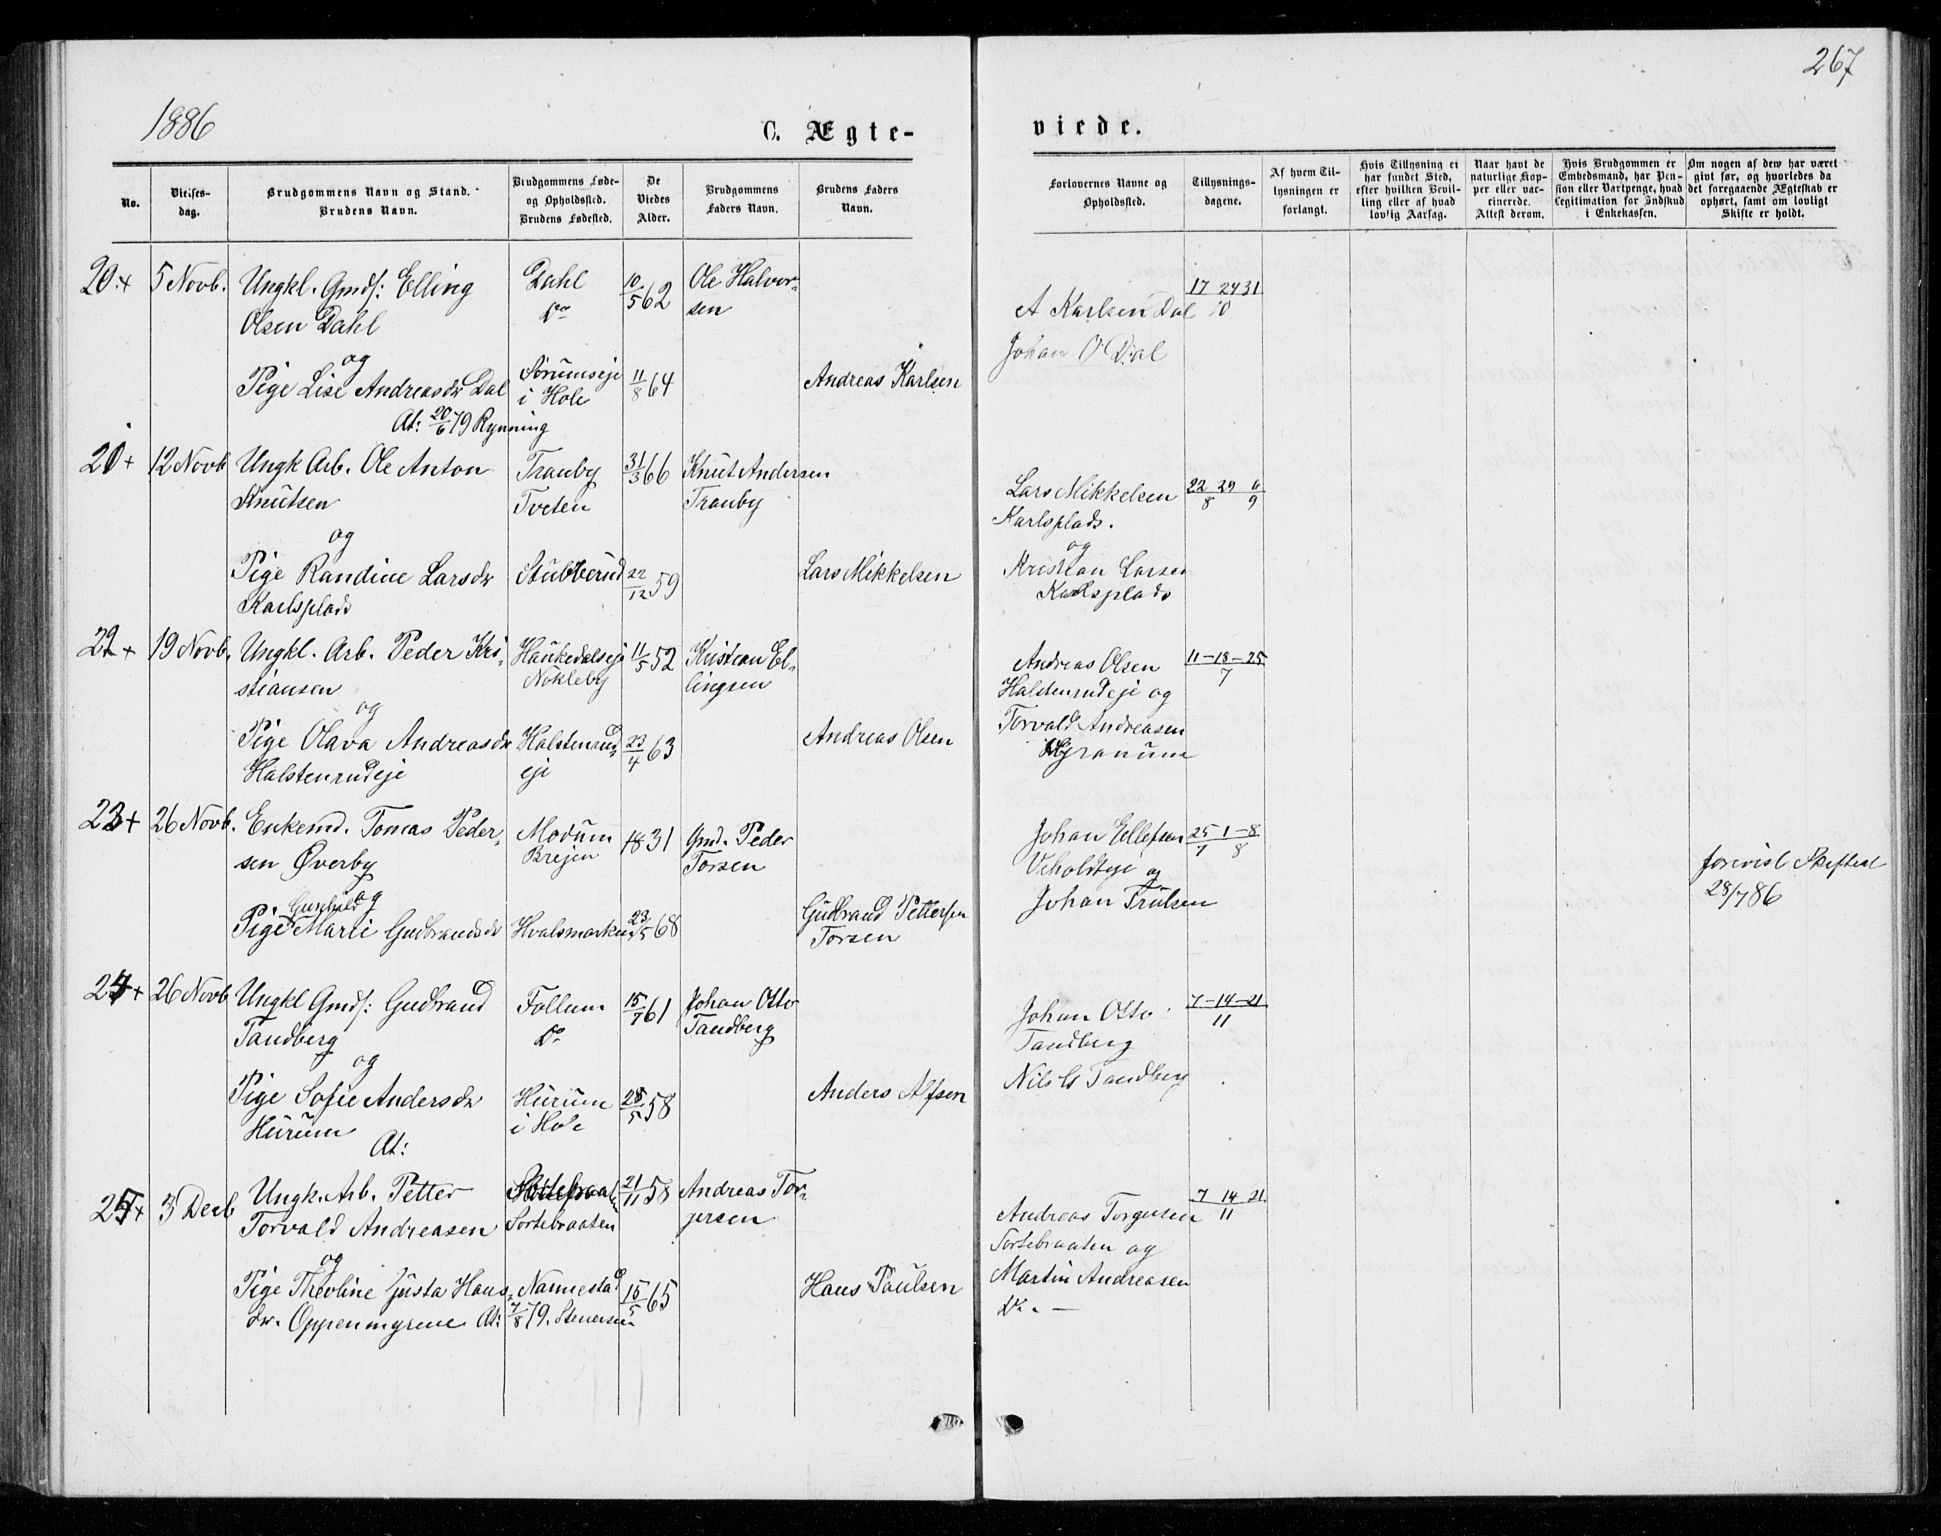 267
1886
C. Ægte-
viede.
No.
Vielses-
dag.
Brudgommens Navn og Stand.
Brudens Navn.
Brudgommens Føde-
og Opholdssted.
Brudens Fødested.
De
Viedes
Alder.
Brudgommens
Faders Navn.
Brudens Faders
Navn.
Forlovernes Navne og
Opholdssted.
Tillysnings-
dagene.
Af hvem Til-
lysningen er
forlangt.
Hvis Tillysning ei
har fundet Sted,
efter hvilken Bevil-
ling eller af hvad
lovlig Aarsag.
Naar havt de
naturlige Kop-
per eller vac-
cinerede.
Attest derom.
Hvis Brudgommen er
Embedsmand, har Pen-
sion eller Vartpenge, hvad
Legitimation for Indskud
i Enkekassen.
Om nogen af dem har været
givt før, og hvorledes da
det foregaaende Ægteskab er
ophørt, samt om lovligt
Skifte er holdt.
20+ 5 Novb. Ungkl. Gmds: Elling
Olsen Dahl
Dahl
Do
10/5 62
Ole Halvor-
sen
A Karlsen Dal
Johan O Dal
17 24 31
10
og
Pige Lise Andreasdr Dal
At: 20/6 79 Rynning
Sørumseje
i Hole
11/8 64
Andreas Karlsen
21+ 12 Novb Ungk Arb. Ole Anton
Knutsen
Tranby
Tveten
31/3 66
Knut Andersen
Tranby
Lars Mikkelsen
Karlsplads.
22 29 6
8 9
og
Pige Randine Larsdr
Karlsplads
Stubberud
22/12 59
Lars Mikkelsen
og
Kristian Larsen
Karlsplads
22+ 19 Novb. Ungkl. Arb. Peder Kri-
stiansen
Haukedalseje
Nökleby
11/5 52
Kristian El-
lingsen
Andreas Olsen
Halstenrudeje og
11-18-25
7
og
Pige Olava Andreasdr
Halstenrudeje
Halstenrud
eje
23/4 63
Andreas Olsen
Torvald Andreasen
Hgranum
23+ 26 Novb. Enkemd. Tomas Peder-
sen Øverby
Modum
Brejen
1831
Gmd. Peder
Torsen
Johan Ellefsen
Veholdteje og
Johan Trulsen
25 1-8
7 8
forevist Skiftest
28/7 86
og
Gunhild
Pige Marie Gudbrandsdr
Hvalsmarken
23/5 68
Gudbrand Pettersen
Torsen
24+ 26 Novb Ungkl Gmds: Gudbrand
Tandberg
Follum
Do
15/7 61
Johan Otto
Tandberg
Johan Otto
Tandberg
Nils G Tandberg
7-14-21
11
og
Pige Sofie Andersdr
Hurum
At:
Hurum
i Hole
28/5 58
Anders Alfsen
25+ 3 Decb Ungk. Arb. Petter
Torvald Andreasen
Sortebraaten
21/11 58
Andreas Tor-
gersen
Andreas Torgersen
Sortebraaten og
Martin Andreasen
Do. —
7 14 21
11
og
Pige Theoline Gusta Hans-
dr. Oppenmyrene At: 7/8 79. Stenersen
Nannestad
15/5 65
Hans Paulsen